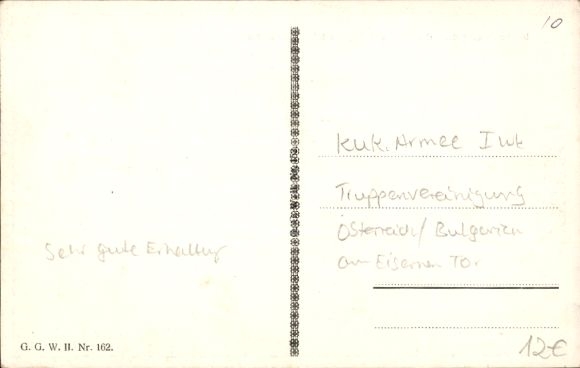 10
KuK. Armee I WK
Truppenvereinigung
Österreich/Bulgarien
am Eisernen Tor
Sehr gute Erhaltung
G. G. W. II. Nr. 162.
12€